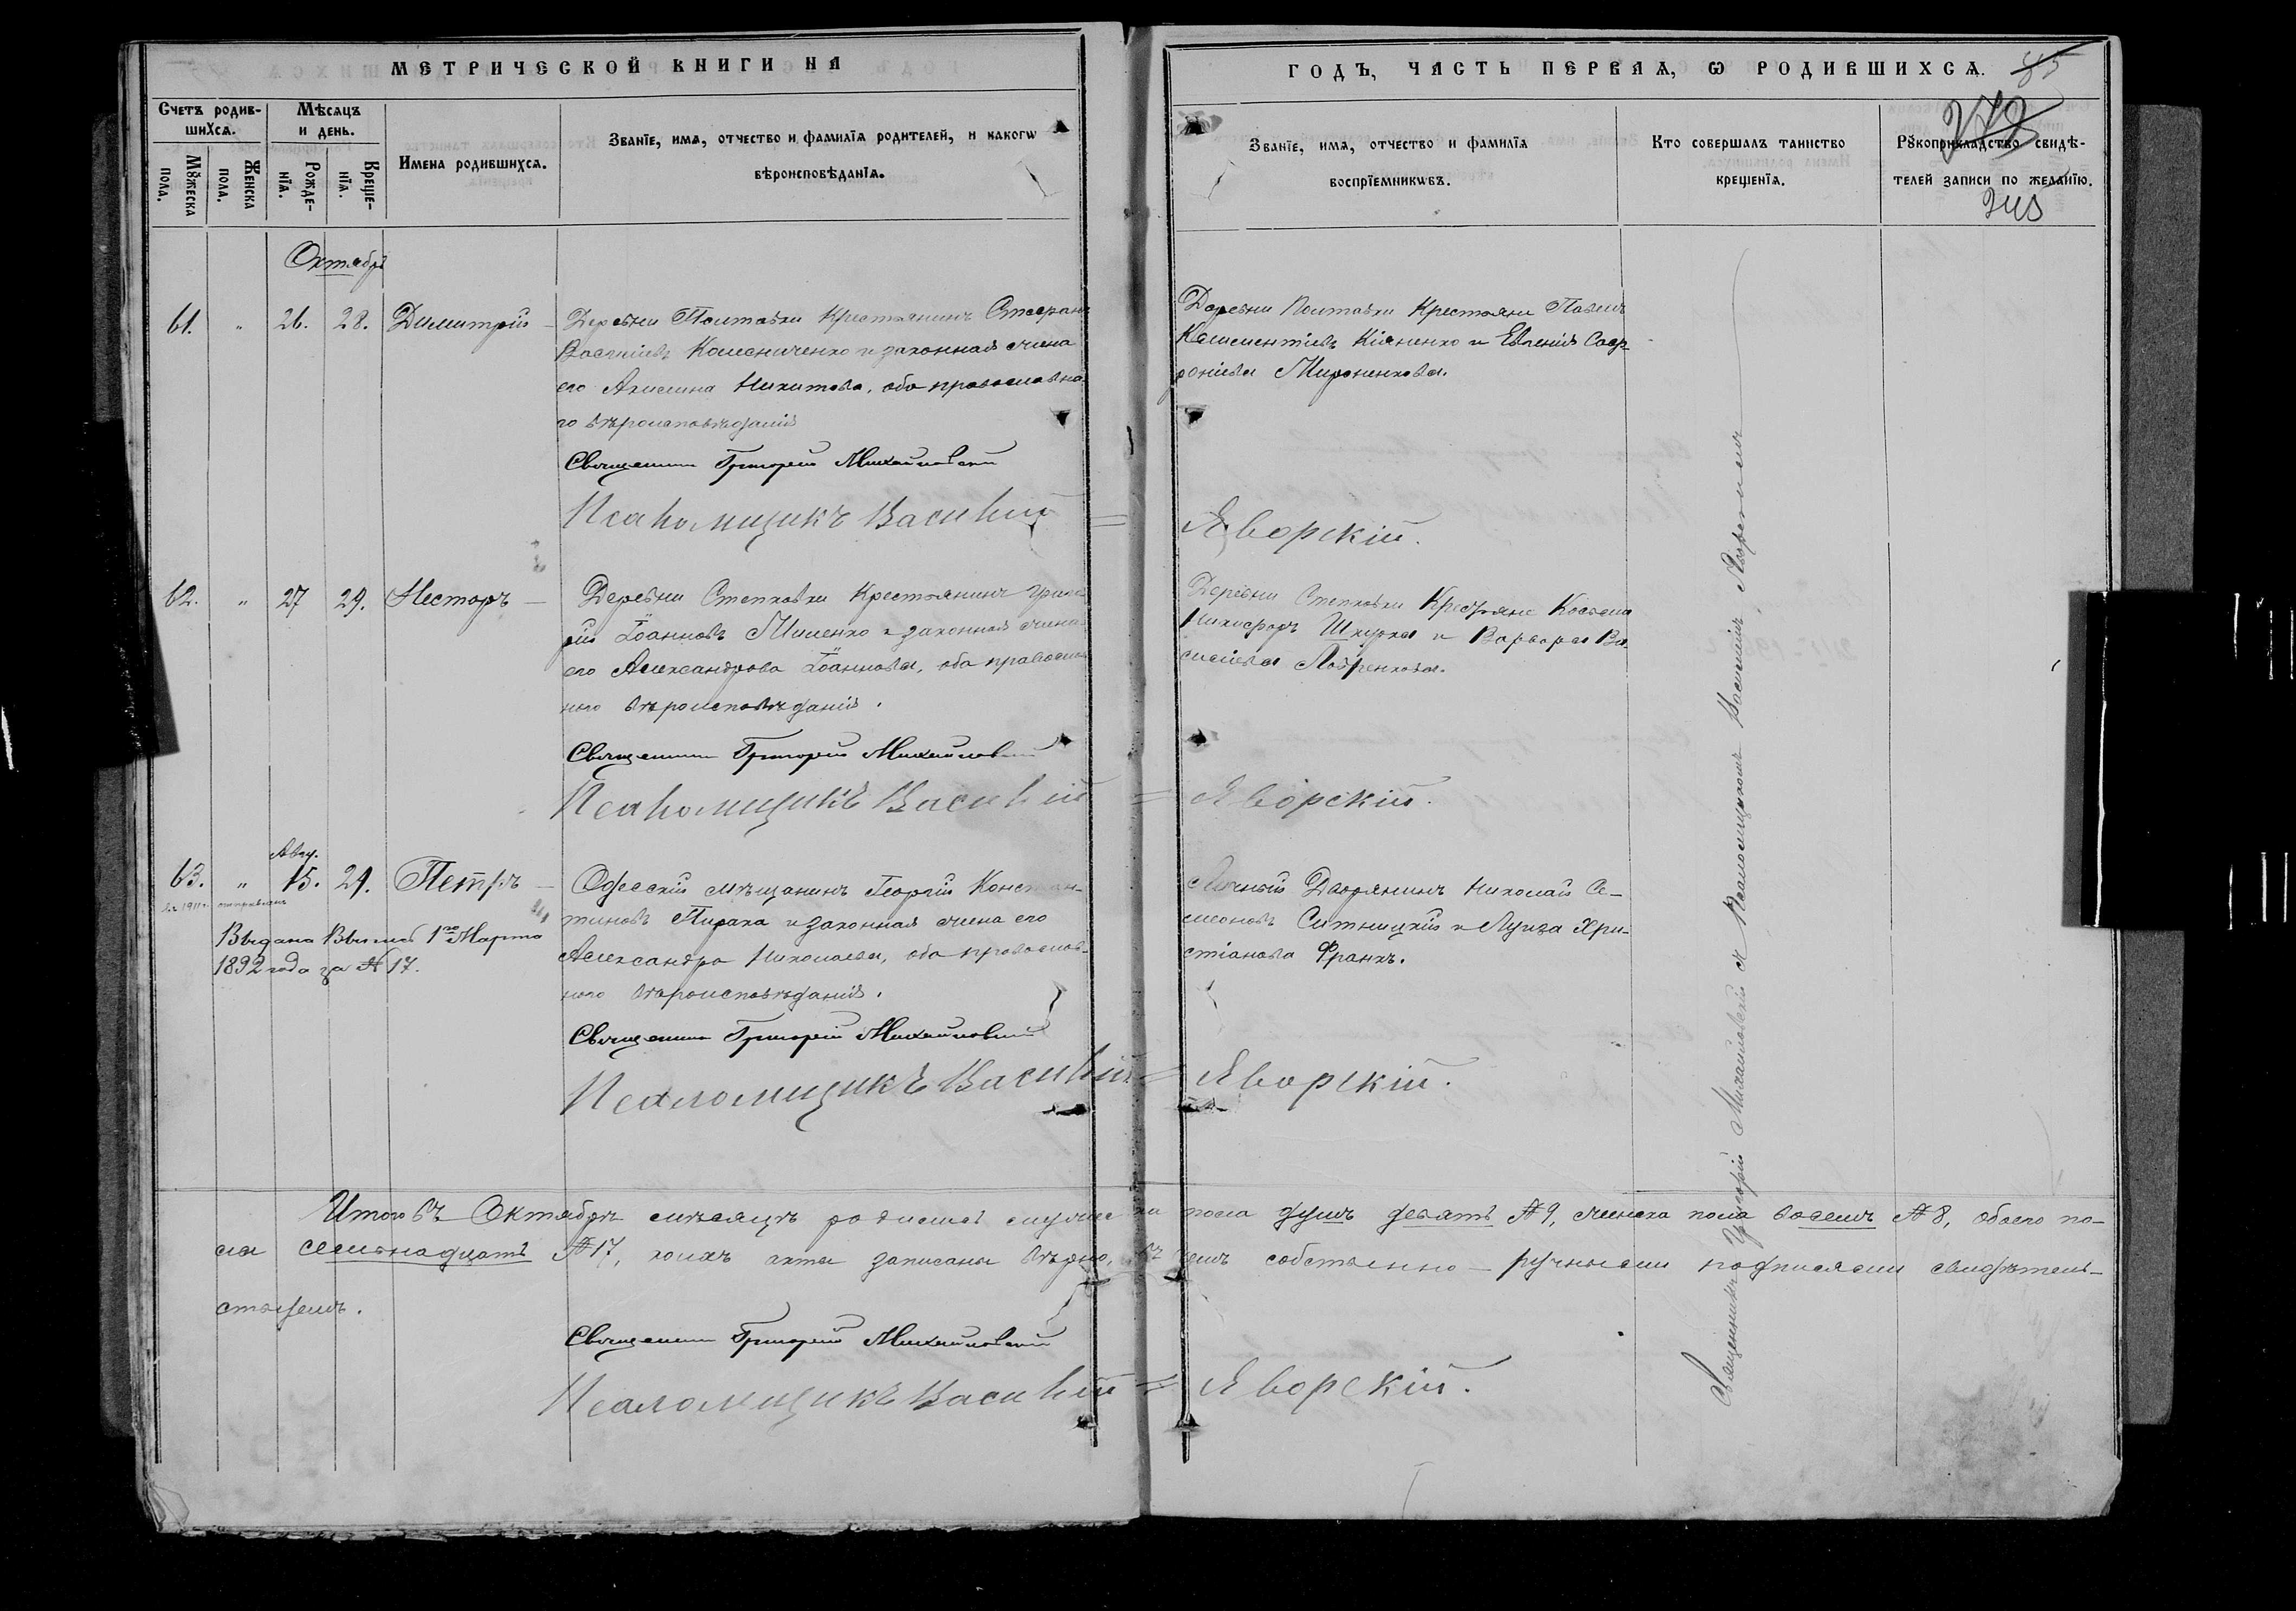 МЕТРИЧЕСКОЙ КНИГИ НА
Счетъ родив-
шихся.
Мѣсяцъ
и день.
Мꙋжеска
пола.
Женска
пола.
Рожде-
нїя.
Креще-
нїя.
Имена родившихся.
Званїе, имя, отчество и фамилїя родителей, и какогѡ
вѣроисповѣданїя.
Октябрь
61. " 26. 28. Димитрій —
Деревни Полтавки Крестьянинъ Стефанъ
Васильевъ Колесниченко и законная жена
его Акилина Никитова, оба православна-
го вѣроисповѣданія
Священникъ Григорій Михайловскій
Псаломщикъ Василій =
62. " 27 29. Несторъ —
Деревни Степковки Крестьянинъ Григо
рій Іоанновъ Мишенко и законная жена
его Александрова Іоаннова, оба православ
наго вѣроисповѣданія.
Священникъ Григорій Михайловскій
Псаломщикъ Василій =
Авгу.
63. " 15. 29. Петръ —
Выдана Выпись 1го Марта
1892 года за № 17.
Одесскій мѣщанинъ Георгій Констан-
тиновъ Пирака и законная жена его
Александра Николаева, оба православ-
наго вѣроисповѣданія.
Священникъ Григорій Михайловскій
Псаломщикъ Василій =
ГОДЪ, ЧАСТЬ ПЕРВАЯ, Ѡ РОДИВШИХСЯ.
85
272
Званїе, имя, отчество и фамилїя
воспрїемникѡвъ.
Кто совершалъ таинство
крещенїя.
Рꙋкоприкладство свидѣ-
телей записи по желанїю.
Деревни Полтавки Крестьяне Павелъ
Климентіевъ Кіяненко и Евгенія Соф-
роніева Мироненкова.
Яворскій.
Деревни Степковки Крестьяне Косьма
Никифоръ Шкурка и Варвара Ва-
силіева Лавренкова.
Яворскій.
Личный Дворянинъ Николай Се-
меоновъ Ситницкій и Луиза Хри-
стіанова Франкъ.
Яворскій.
Священникъ Григорій Михайловскій и Псаломщикомъ Василіемъ
Итого въ Октябрѣ мѣсяцѣ родилось мужеска пола душъ девять № 9, женска пола восемь № 8, обоего по-
ла семьнадцать № 17, коихъ акты записаны вѣрно, въ чемъ собственно-ручными подписами свидѣтель-
ствуемъ.
Священникъ Григорій Михайловскій
Псаломщикъ Василій = Яворскій.